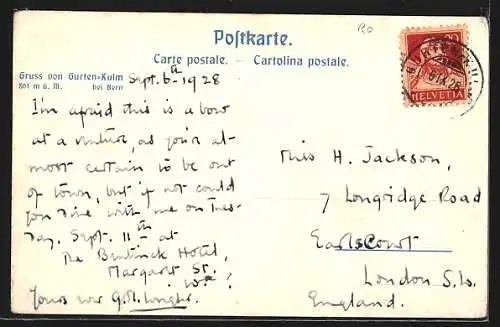 Postkarte.
Carte postale. – Cartolina postale.
Ro
Gruss von Gurten-Kulm
861 m ü. M. bei Bern
Sept. 6th 1928
I'm afraid this is a bow
at a venture, as you're al-
most certain to be out
of town, but if not could
you dine with me on Tues-
day. Sept. 11th at
The Bentinck Hotel,
Margaret St.
W1?
Yours ever G.M.
Miss H. Jackson,
7 Longridge Road
Earls Court
London S.W.
England.
20
HELVETIA